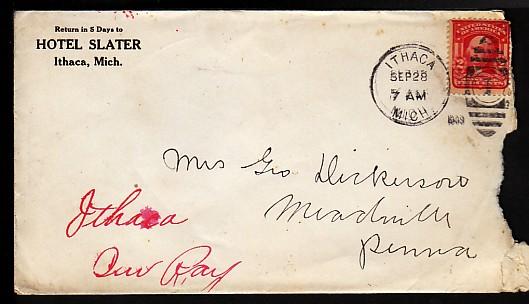 Return in 5 Days to
HOTEL SLATER
Ithaca, Mich.
ITHACA
SEP 28
7 AM
MICH.
1909
2
Mrs Geo Dickerson
Meadville
Penna
Ithaca
Ray